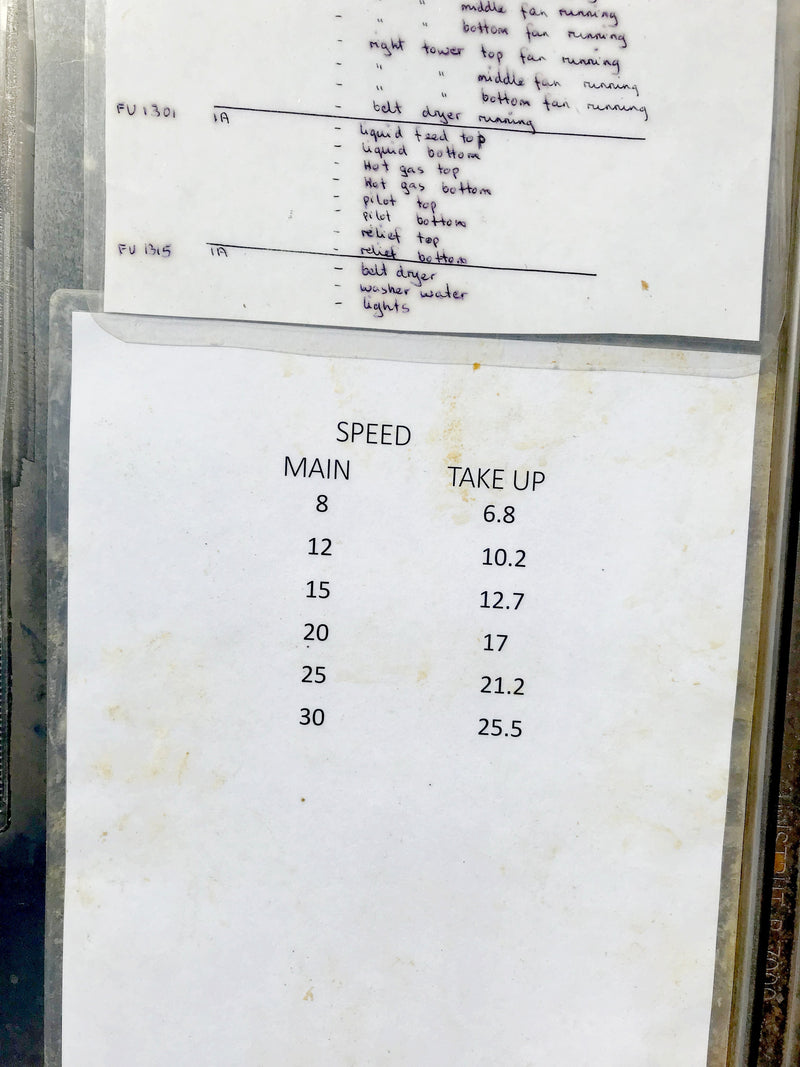 " " middle fan running
" " bottom fan running
- right tower top fan running
- " " middle fan running
- " " bottom fan running
- belt dryer running
FU 1301 1A - liquid feed top
- liquid bottom
- Hot gas top
- Hot gas bottom
- pilot top
- pilot bottom
- relief top
- relief bottom
FU 1315 1A - belt dryer
- washer water
- lights
SPEED
MAIN TAKE UP
8 6.8
12 10.2
15 12.7
20 17
25 21.2
30 25.5